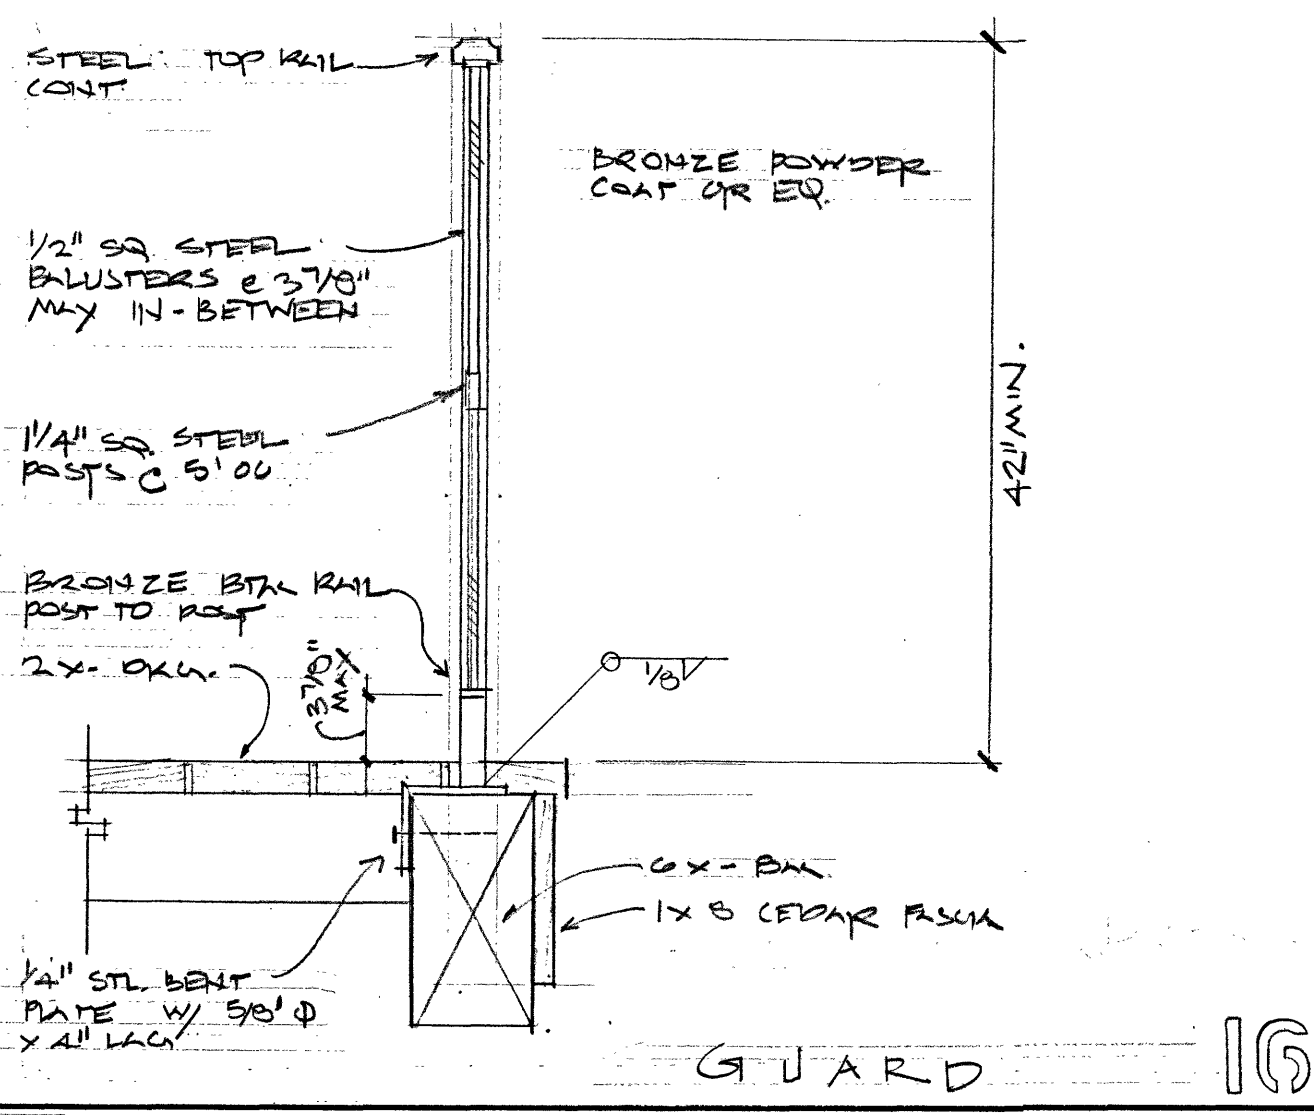 STEEL TOP RAIL
CONT.
BRONZE POWDER
COAT OR EQ.
1/2" SQ. STEEL
BALUSTERS @ 3 7/8"
MAX IN-BETWEEN
1 1/4" SQ. STEEL
POSTS @ 5' OC
42" MIN.
BRONZE BTM. RAIL
POST TO POST
2X- DKG.
3 7/8"
MAX
1/8
6X- BM.
1X8 CEDAR FASCIA
1/4" STL. BENT
PLATE W/ 5/8" Φ
X 4" LAG
GUARD
16